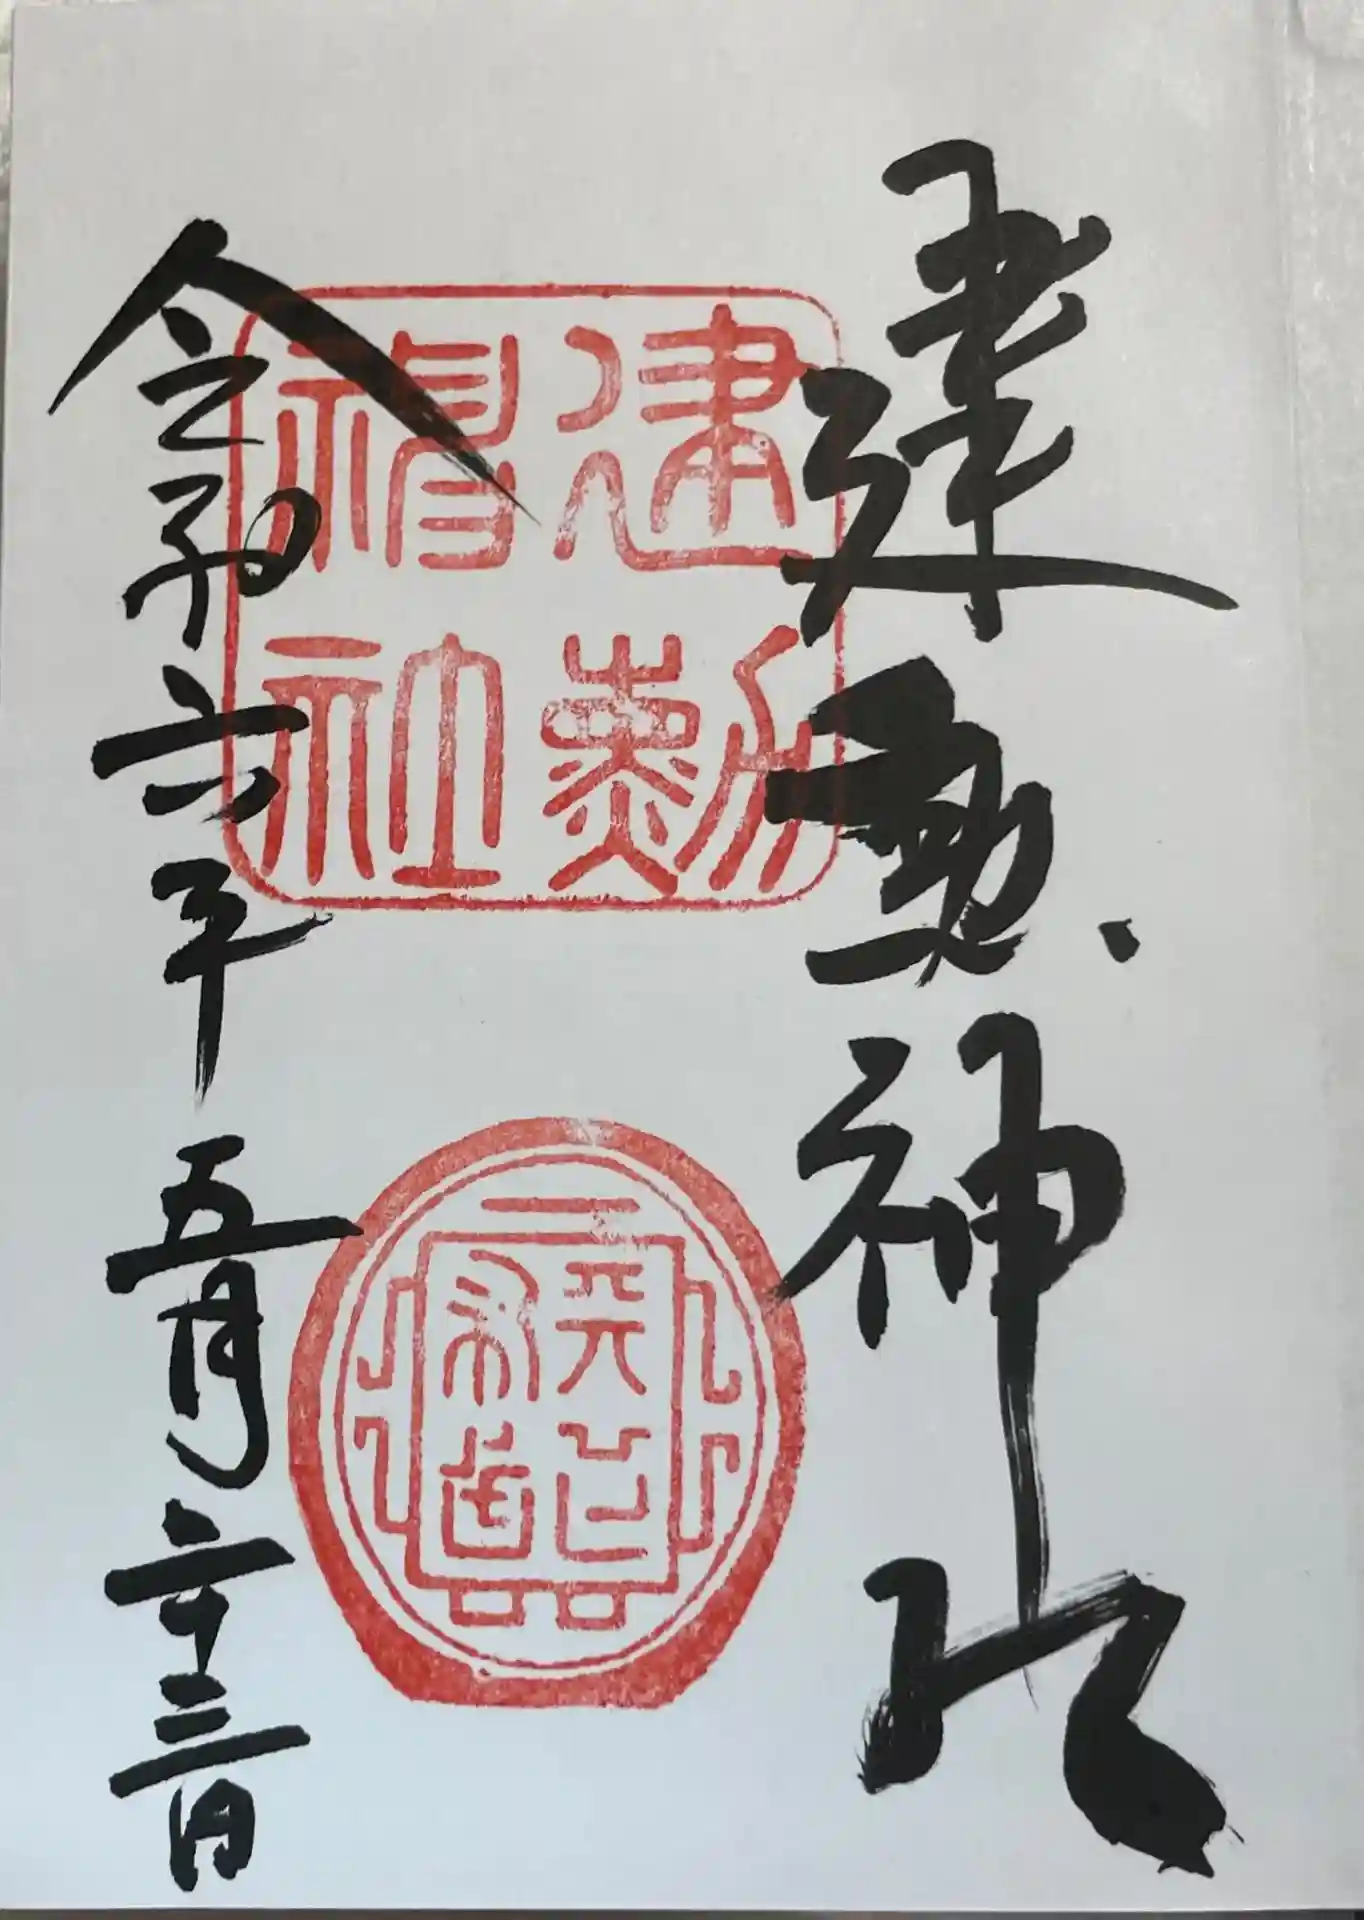 建勲神社
建勲
神社
天下布武
令和六年五月二十三日